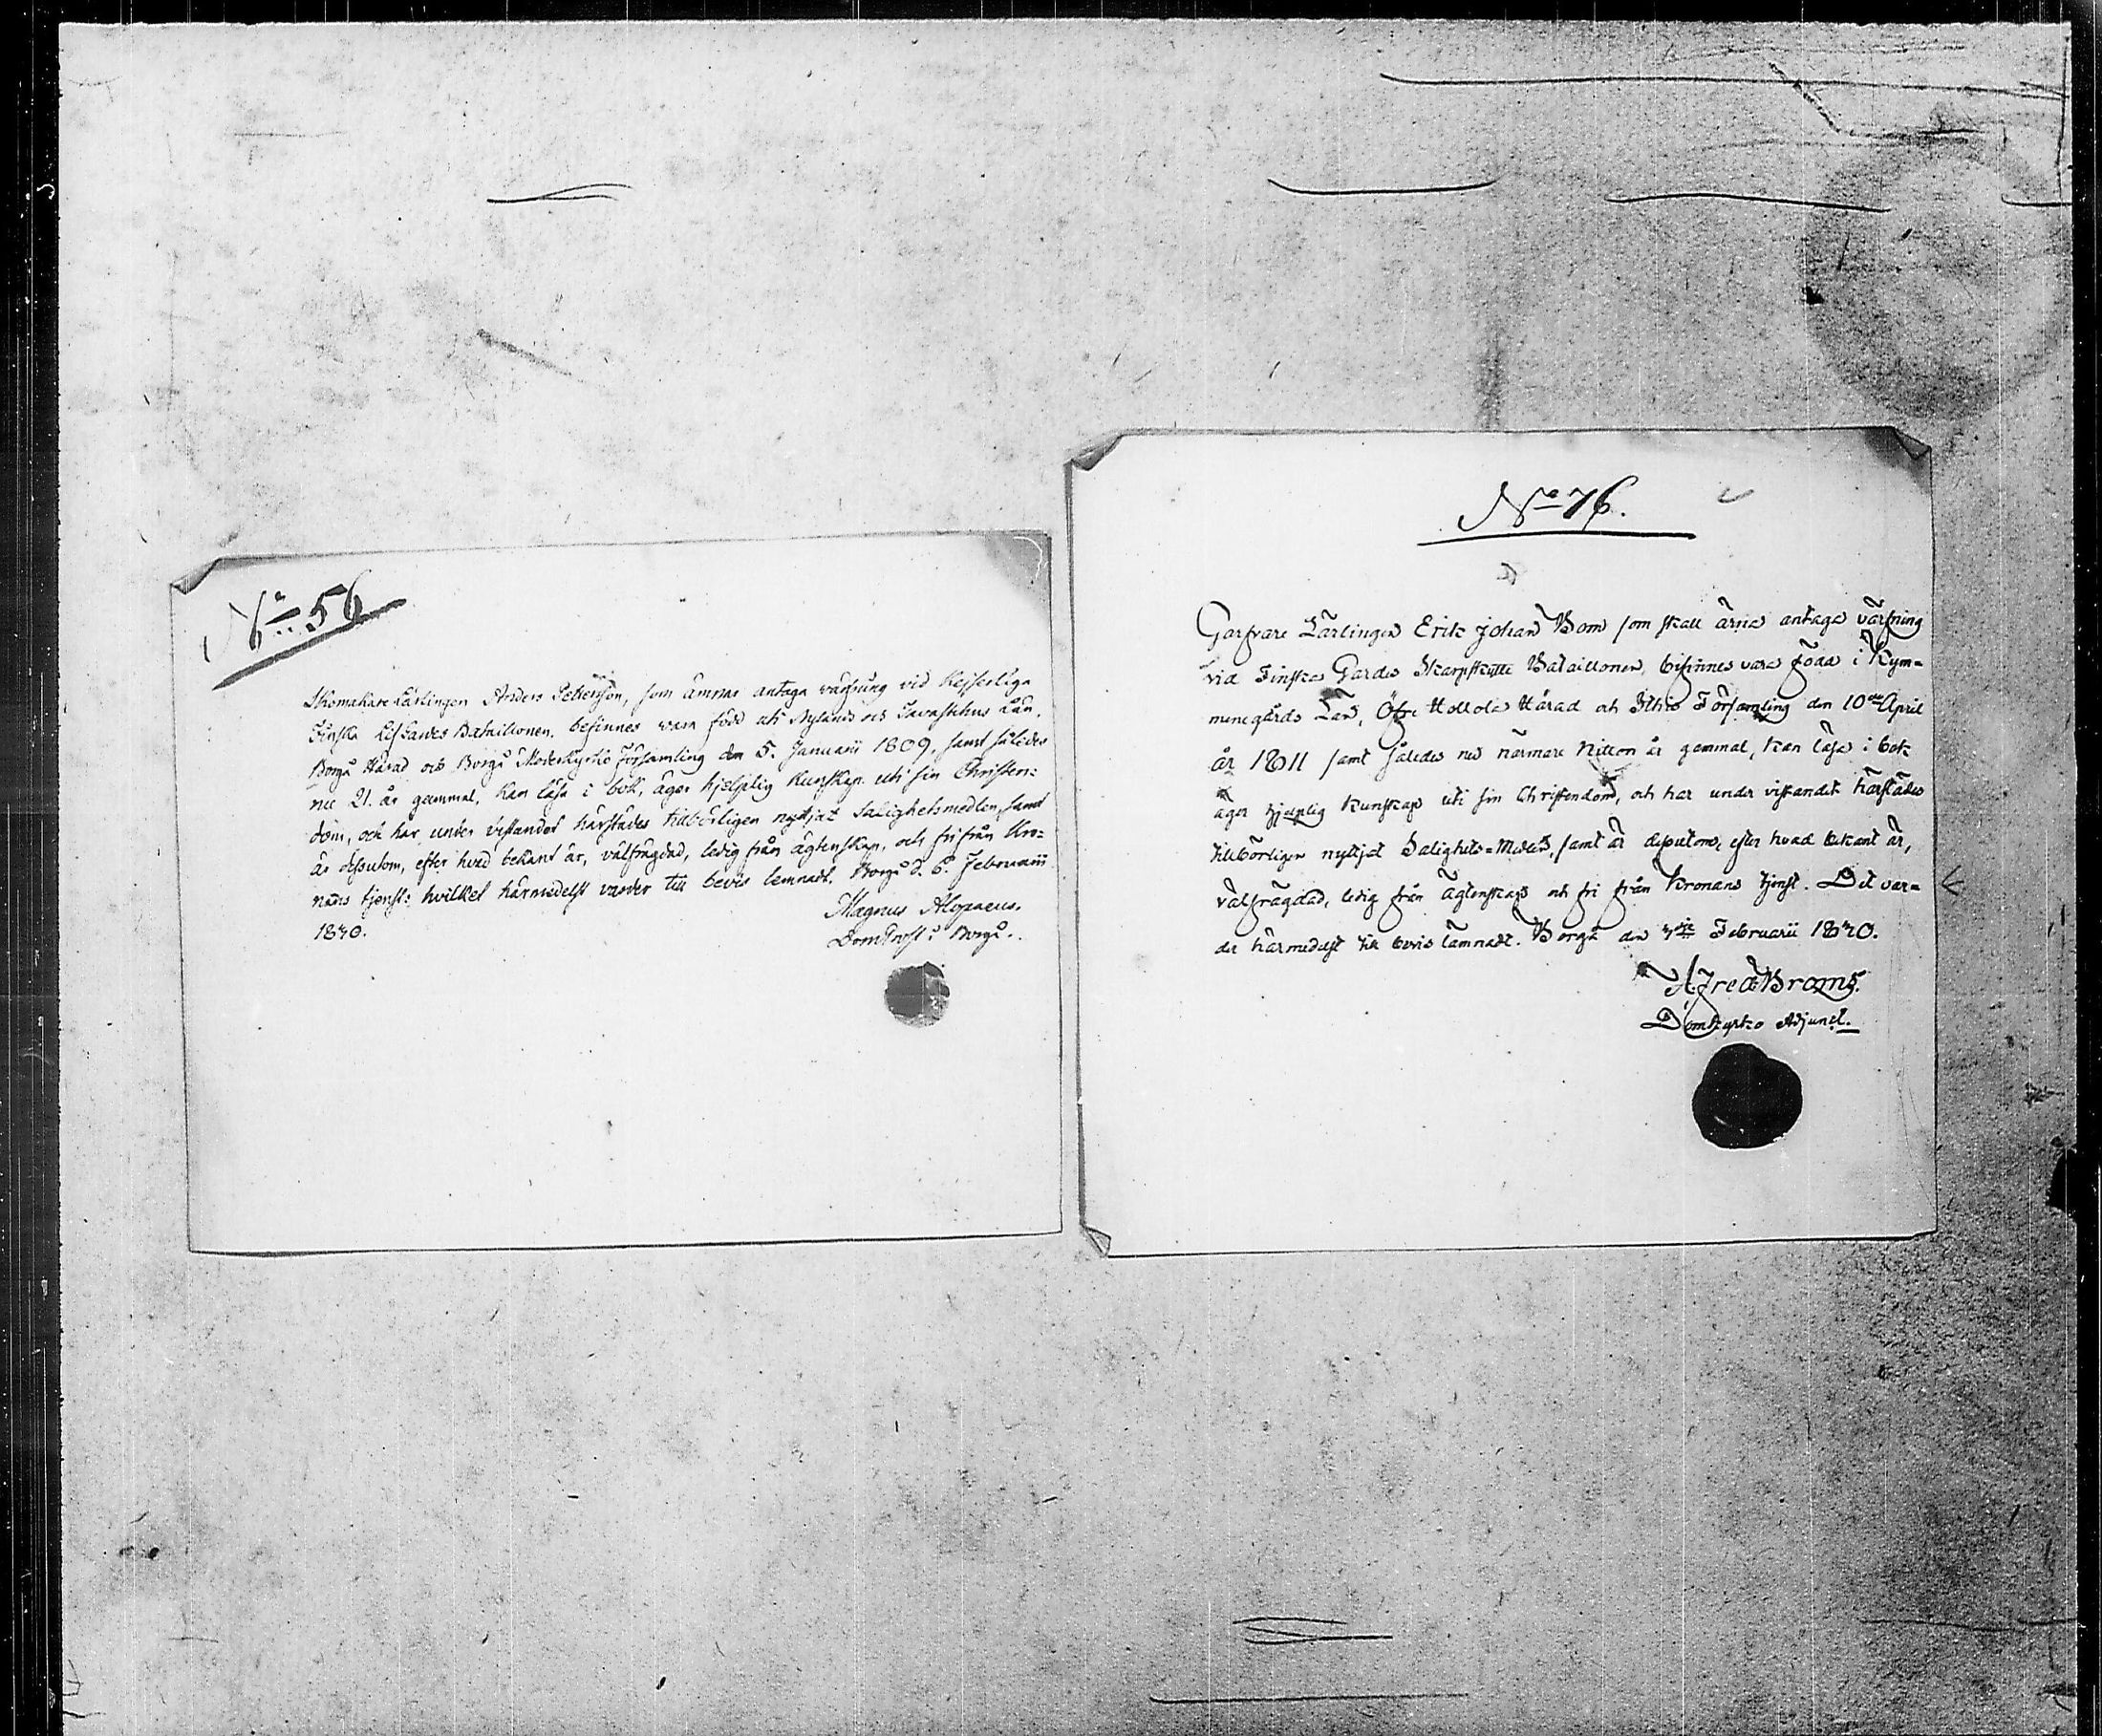 No 56
Skomakare Lärlingen Anders Peterson, som ämnar antaga värfning vid Kejserliga
Finska Lif Gardes Bataillonen, befinnes vara född uti Nylands och Tavastehus Län,
Borgå Härad och Borgå Moderkyrko Församling den 5. Januarii 1809, samt således
nu 21. år gammal, kan läsa i bok, äger hjelplig kunskap uti sin Christen=
dom, och har under vistandet härstädes tillbörligen nyttjat Salighetsmedlen, samt
är dessutom, efter hvad bekant är, välfrägdad, ledig från ägtenskap, och fri från Kro=
nans tjenst: hvilket härmedelst varder till bevis lemnadt. Borgå d. 6. Februarii
1830.
Magnus Alopaeus.
DomProst i Borgå.
No 76.
Garfvare Lärlingen Erik Johan Bom som skall ärna antaga värfning
vid Finska Gardes Skarpskytte Bataillonen, befinnes vara född i Kym=
menegårds Län, Öfre Hollola Härad och Församling den 10de April
år 1811 samt således nu närmare Nitton år gammal, kan läsa i bok
äger hjelplig kunskap uti sin Christendom, och har under vistandet härstädes
tillbörligen nyttjat Salighets=Medlen, samt är dessutom, efter hvad bekant är,
välfrägdad, ledig från Ägtenskap och fri från Kronans tjenst. Det var=
der härmedelst till bevis lämnadt. Borgå den 7de Februarii 1830.
Domkyrko Adjunct.